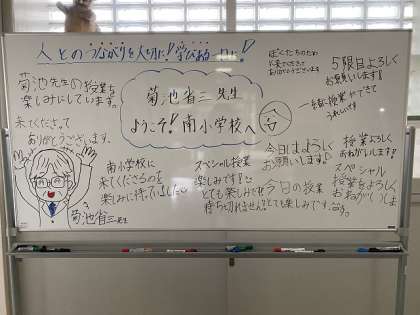 人とのつながりを大切に!学びある一日に!
菊池先生の授業を
楽しみにしています。
来てくださって
ありがとうございます。
菊池省三先生
ようこそ!南小学校へ
ぼくたちのため
に来てくださって
ありがとうございます
5限目よろしく
お願いします!
一緒に授業ができて
うれしいです
南小学校に
来てくださるのを
楽しみに待っていました
スペシャル授業
楽しみです!
とても楽しみです
待ち切れません!!
今日はよろしく
お願いします♪
今日の授業
とても楽しみです。
授業よろしく
おねがいします!
スペシャル
授業をよろしく
おねがいしま
す。
菊池省三先生